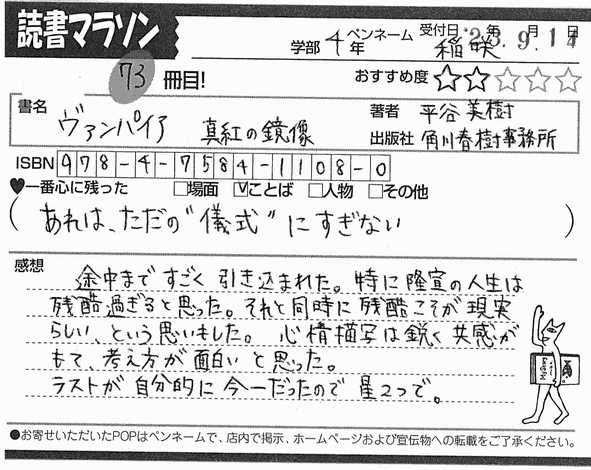 読書マラソン
73 冊目!
学部 4年 ペンネーム 稲咲 受付日 '23年 9.月 14日
おすすめ度 ★★☆☆☆
書名 ヴァンパイア 真紅の鏡像
著者 平谷美樹
出版社 角川春樹事務所
ISBN 978-4-7584-1108-0
♥一番心に残った □場面 ☑ことば □人物 □その他
(あれは、ただの"儀式"にすぎない)
感想
途中まですごく引き込まれた。特に隆宣の人生は
残酷過ぎると思った。それと同時に残酷こそが現実
らしい、という思いもした。心情描写は鋭く共感が
もて、考え方が面白いと思った。
ラストが自分的に今一だったので星2つで。
●お寄せいただいたPOPはペンネームで、店内で掲示、ホームページおよび宣伝物への転載をご了承ください。